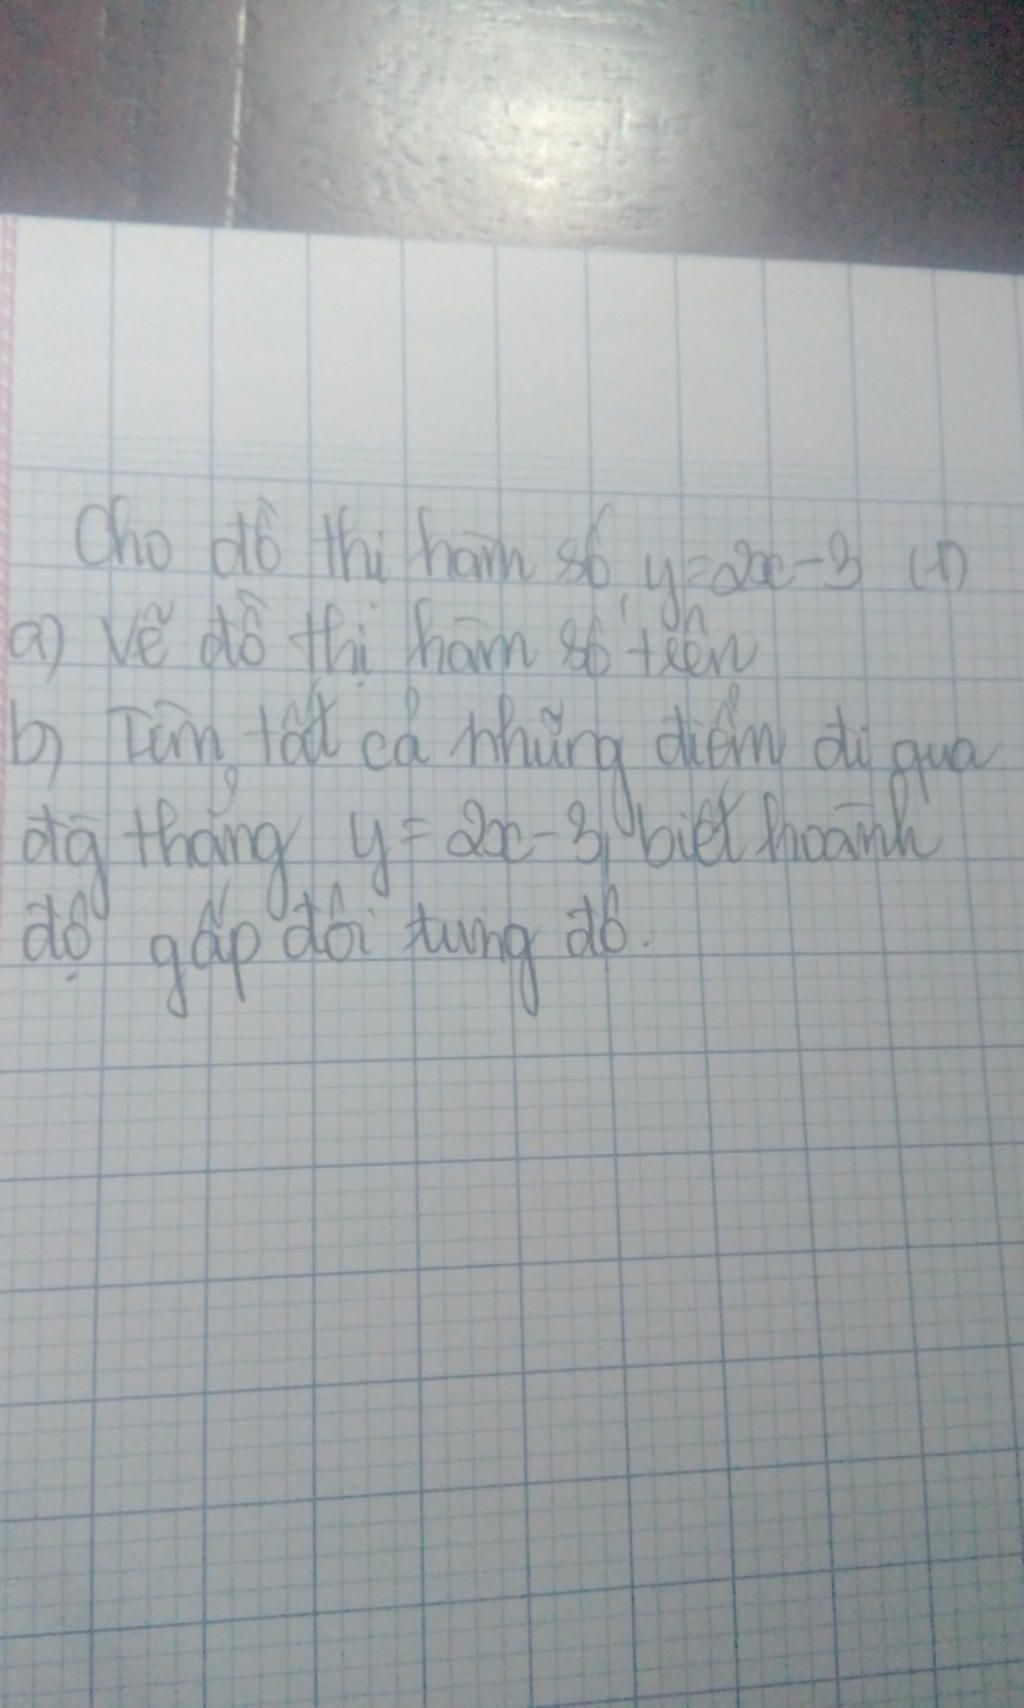 Cho đồ thị hàm số y=2x-3 (1)
a) Vẽ đồ thị hàm số trên
b) Tìm tất cả những điểm đi qua
đg thẳng y=2x-3, biết hoành
độ gấp đôi tung độ.